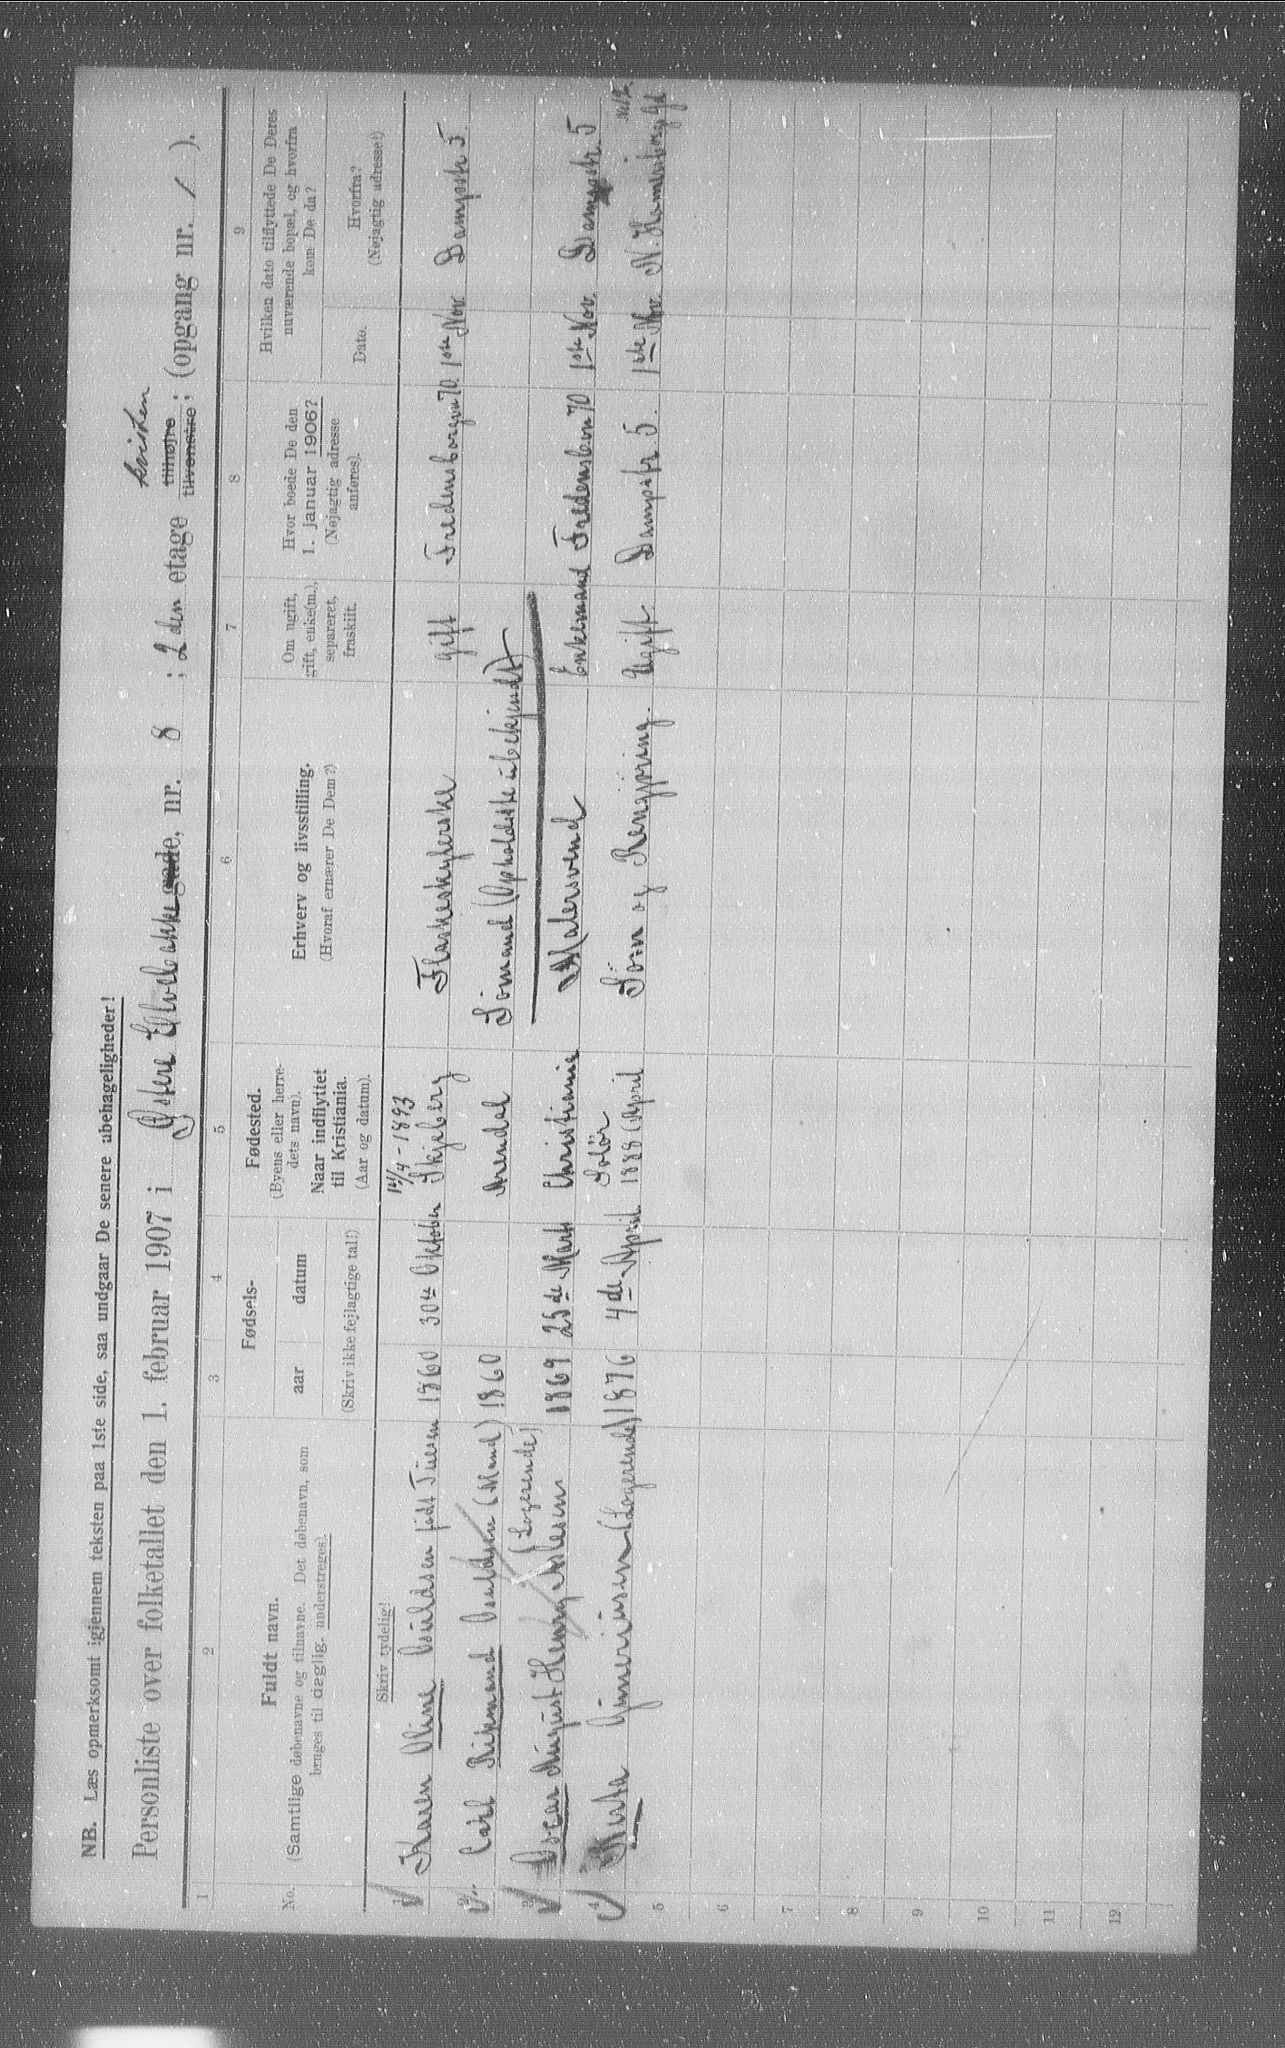 NB. Læs opmerksomt igjennem teksten paa 1ste side, saa undgaar De senere ubehageligheder!
Personliste over folketallet den 1. februar 1907 i Østere Elvebakke gade, nr. 8 ; 2den etage kvisten tilhøjre tilvenstre; (opgang nr. / ).
1 2 3 4 5 6 7 8 9
No.
Fuldt navn.
(Samtlige døbenavne og tilnavne. Det døbenavn, som
bruges til daglig, understreges).
Fødsels-
aar datum
(Skriv ikke fejlagtige tal!)
Fødested.
(Byens eller herre-
dets navn).
Naar indflyttet
til Kristiania.
(Aar og datum).
Erhverv og livsstilling.
(Hvoraf ernærer De Dem?)
Om ugift,
gift, enke(m.),
separeret,
fraskilt.
Hvor boede De den
1. januar 1906?
(Nøjagtig adresse
anføres).
Hvilken dato tilflyttede De Deres
nuværende bopæl, og hvorfra
kom De da?
Dato.
Hvorfra?
(Nøjagtig adresse!)
Skriv tydelig!
1 Karen Oline Osuldsen født 1860 30te Oktober 12/4-1893 Skjeberg Flaskeskyllerske gift Fredensborgvn 70 1ste Nov. Dampstr 5.
2 Carl Osuldsen (Mand) 1860 Arendal Sömand (Opholdsste ubekjendt)
3 Oscar August Henry (Logerende) 1869 25de Marts Christiania Malersvend Enkemand Fredensb.vn 70 1ste Nov. Dampstr. 5
4 (Logerende) 1876 4de April Solør 1888 (April Söm og Rengjøring. Ugift. Dampstr 5. 1ste Nov. N. Hammersborggd No 12
5
6
7
8
9
10
11
12